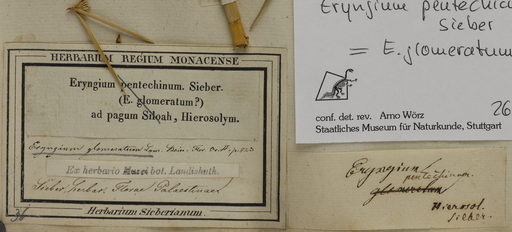 HERBARIUM REGIUM MONACENSE
Eryngium pentechinum. Sieber.
(E. glomeratum?)
ad pagum Siloah, Hierosolym.
Eryngium glomeratum Lam. Boiss. Flor. Or. II. p. 823
Ex herbario Musei bot. Landishuth.
Sieber, herbar. Florae Palaestinae
Herbarium Sieberianum.
36
Eryngium pentechin
Sieber
= E. glomeratum
conf. det. rev. Arno Wörz
Staatliches Museum für Naturkunde, Stuttgart
26
Eryngium
pentechinum.
glomeratum
Hierosol.
Sieber.